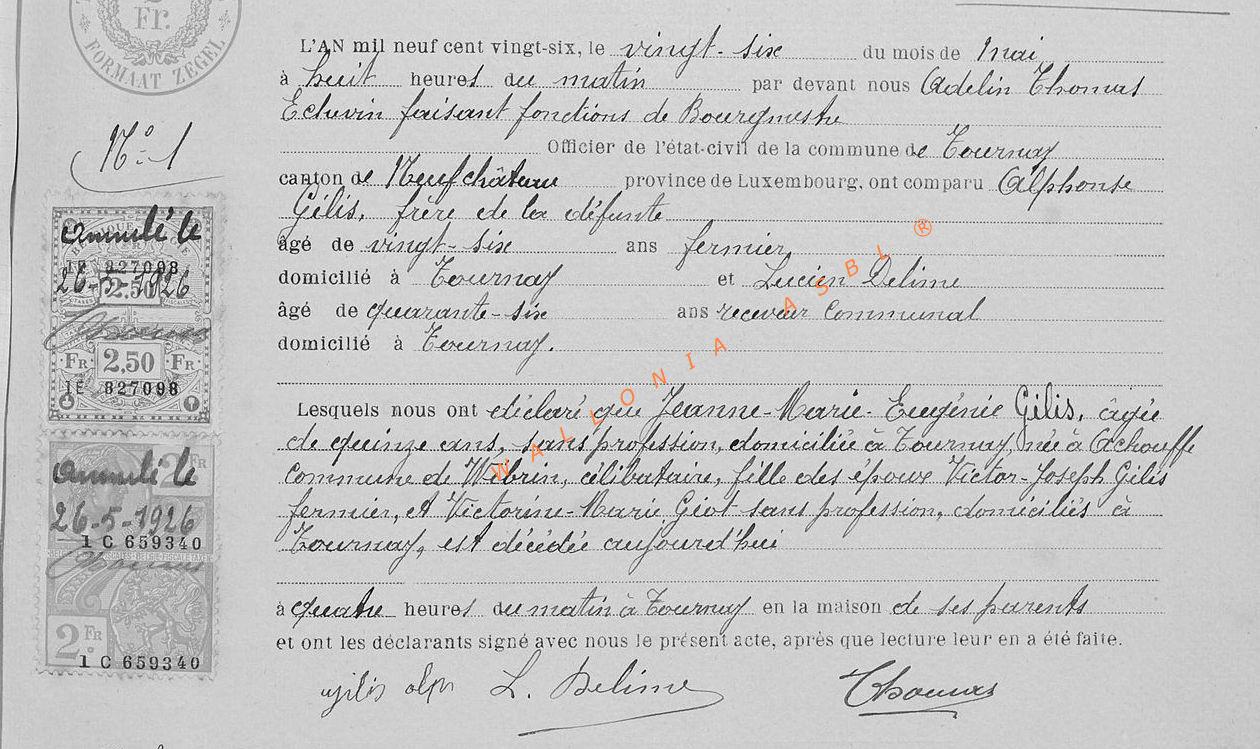 Fr.
FORMAAT ZEGEL
L'AN mil neuf cent vingt-six, le vingt-six du mois de Mai
à huit heures du matin par devant nous Adelin Thomas
Echevin faisant fonctions de Bourgmestre
Officier de l'état-civil de la commune de Tournay
canton de Neufchâteau province de Luxembourg, ont comparu Alphonse
Gilis, frère de la défunte
âgé de vingt-six ans fermier
domicilié à Tournay et Lucien Delime
âgé de quarante-six ans receveur Communal
domicilié à Tournay.
Lesquels nous ont déclaré que Jeanne-Marie-Eugénie Gilis, âgée
de quinze ans, sans profession, domiciliée à Tournay, née à Achouffe
commune de Wibrin, célibataire, fille des époux Victor-Joseph Gilis
fermier, et Victorine-Marie Géot sans profession, domiciliés à
Tournay, est décédée aujourd'hui
à quatre heures du matin à Tournay en la maison de ses parents
et ont les déclarants signé avec nous le présent acte, après que lecture leur en a été faite.
gilis alp L. Delime Thomas
No 1
annulé le
1E 827098
26-5-1926
2.50
Thomas
Fr 2,50 Fr
1E 827098
annulé le
2 Fr
26-5-1926
1 C 659340
Thomas
2 Fr
1 C 659340
WALLONIA ASBL ®